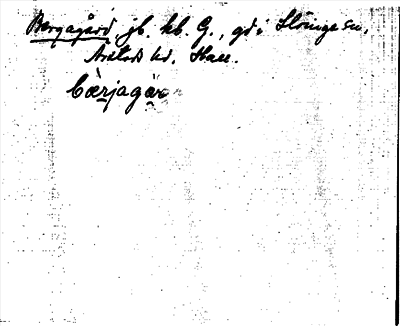 Bergagård jb. kb. G., gd i Slöinge sn,
Årstads hd, Hall.
bærjagår